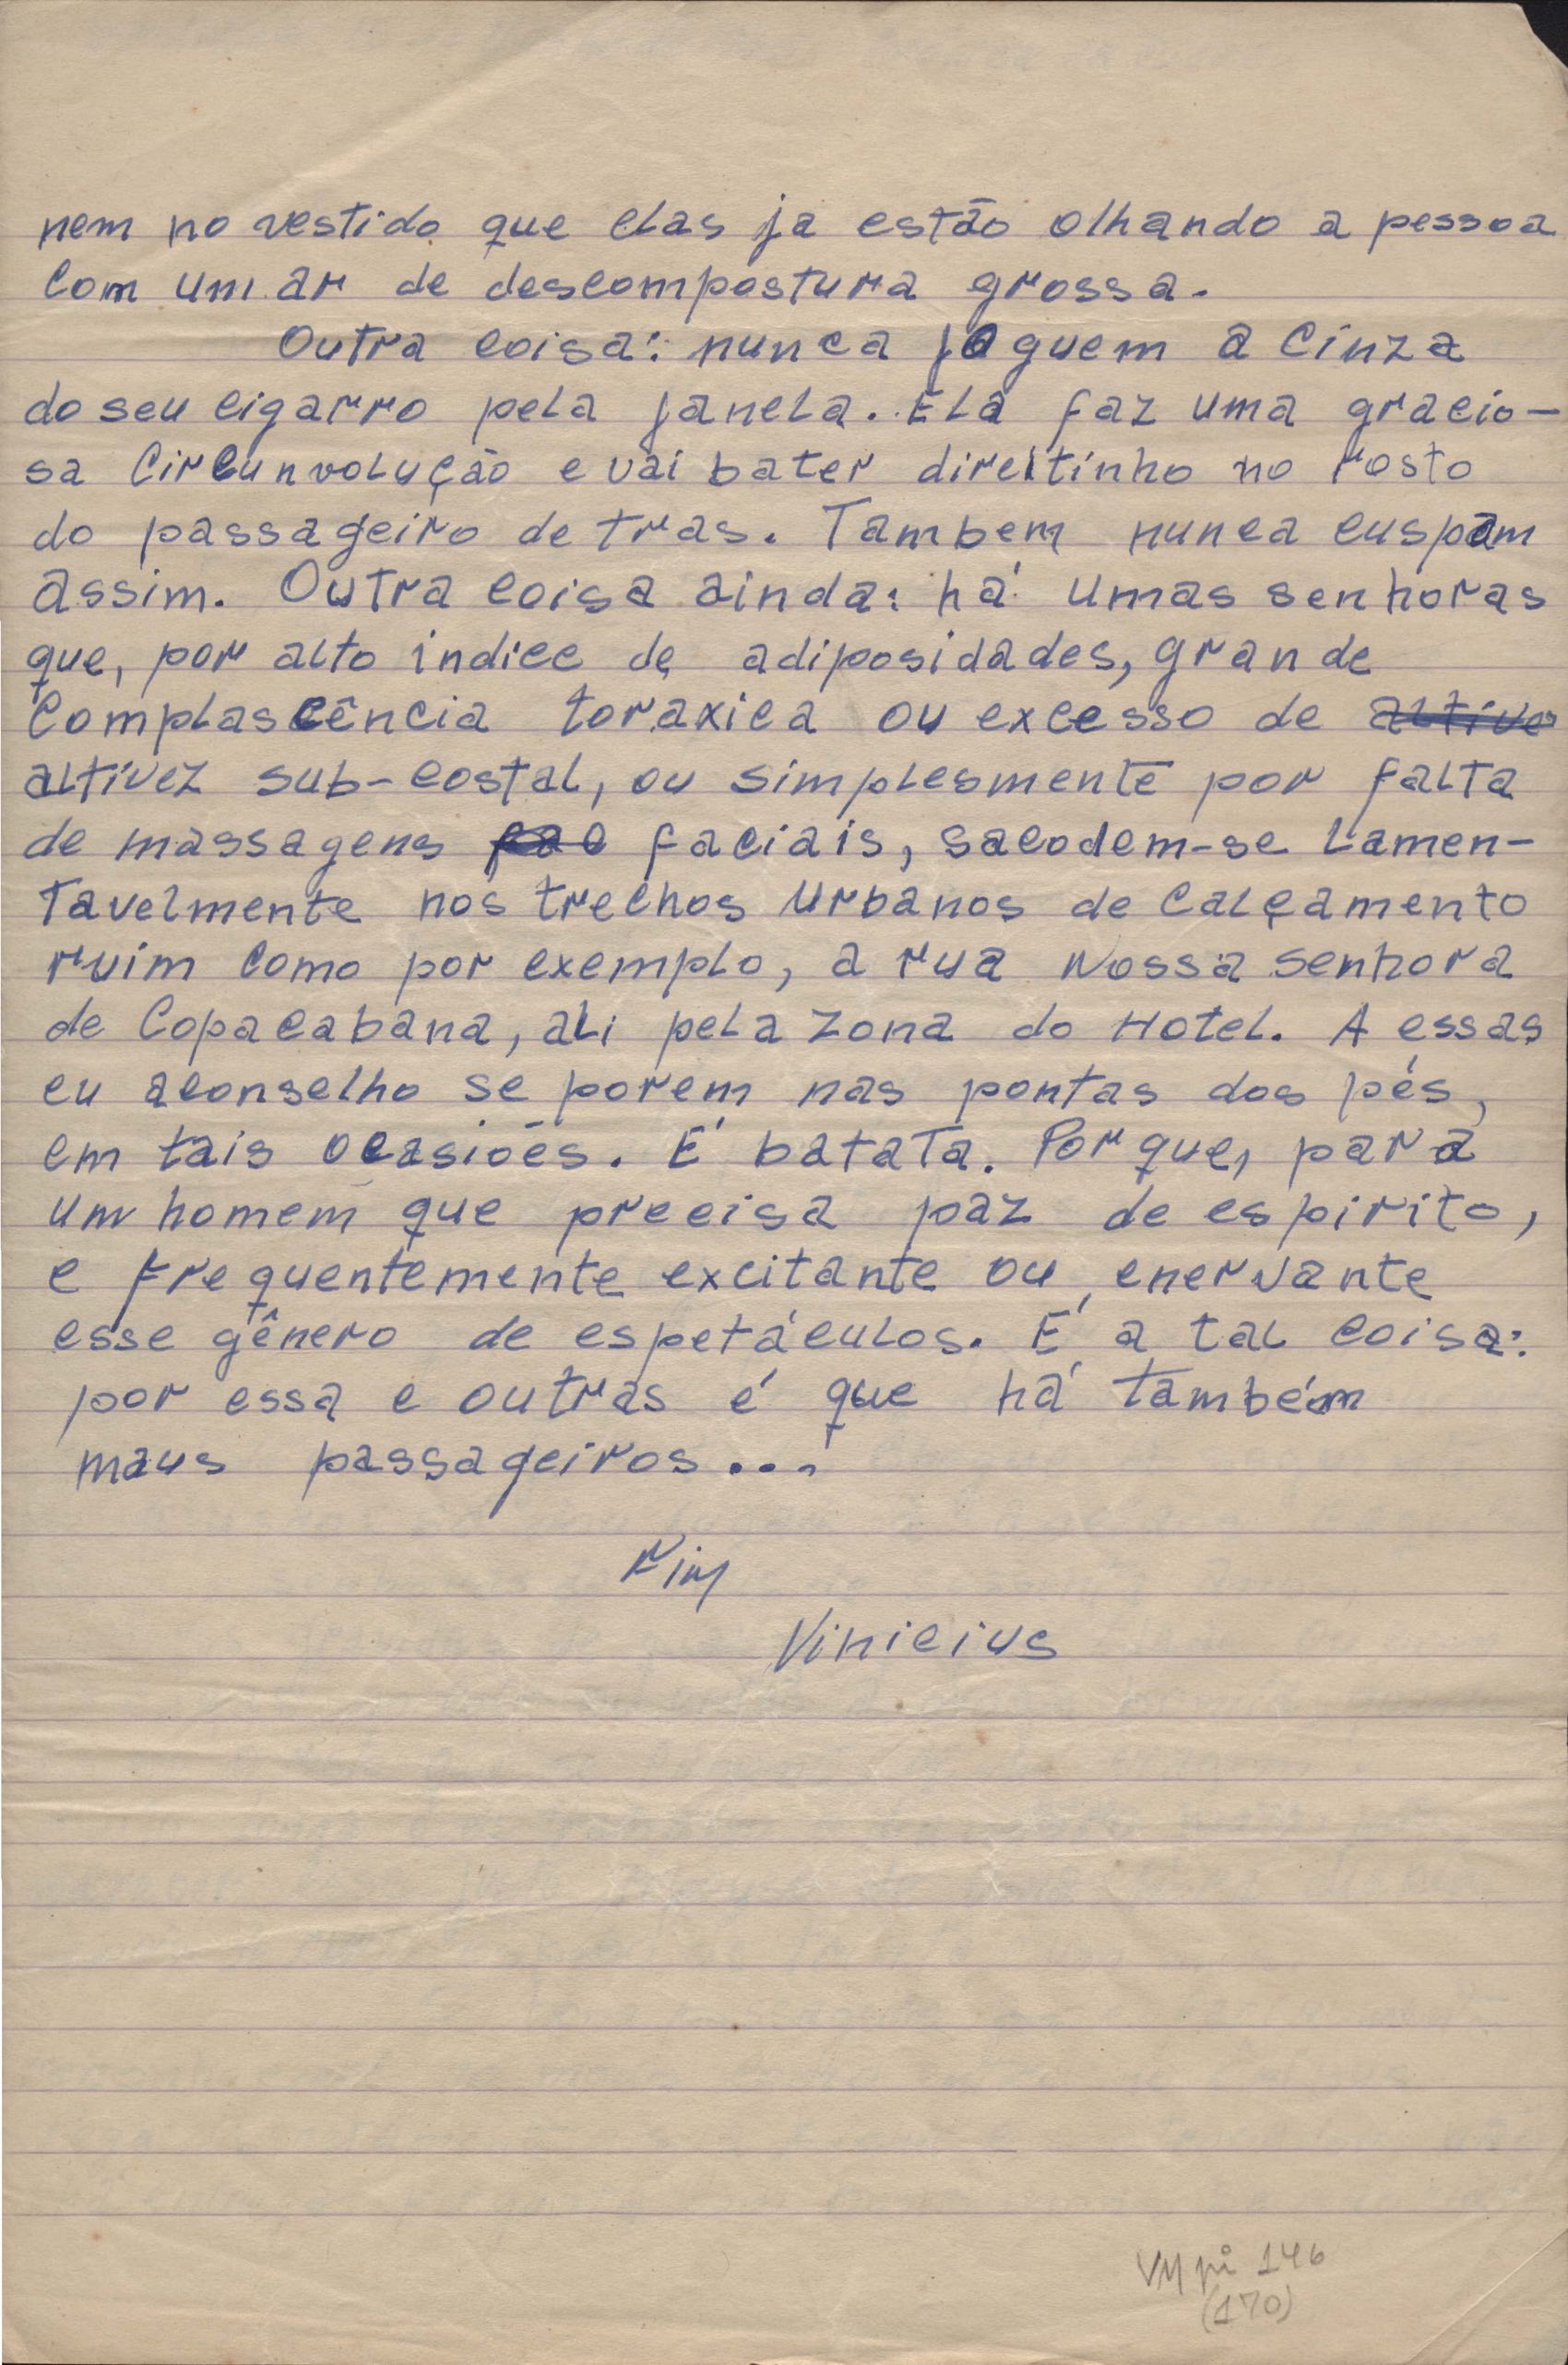 nem no vestido que elas ja estão olhando a pessoa
com um ar de descompostura grossa.
Outra coisa: nunca joguem a cinza
do seu cigarro pela janela. Ela faz uma gracio-
sa circunvolução e vai bater direitinho no rosto
do passageiro de tras. Tambem nunca cuspam
assim. Outra coisa ainda: há umas senhoras
que, por alto indice de adiposidades, grande
complascência toraxica ou excesso de altive
altivez sub-costal, ou simplesmente por falta
de massagens fac faciais, sacodem-se lamen-
tavelmente nos trechos urbanos de calçamento
ruim como por exemplo, a rua Nossa Senhora
de Copacabana, ali pela zona do Hotel. A essas
eu aconselho se porem nas pontas dos pés,
em tais ocasiões. É batata. Porque, para
um homem que precisa paz de espirito,
e frequentemente excitante ou enervante
esse gênero de espetáculos. É a tal coisa:
por essa e outras é que há também
maus passageiros...
Fim
Vinicius
VM pi 146
(170)